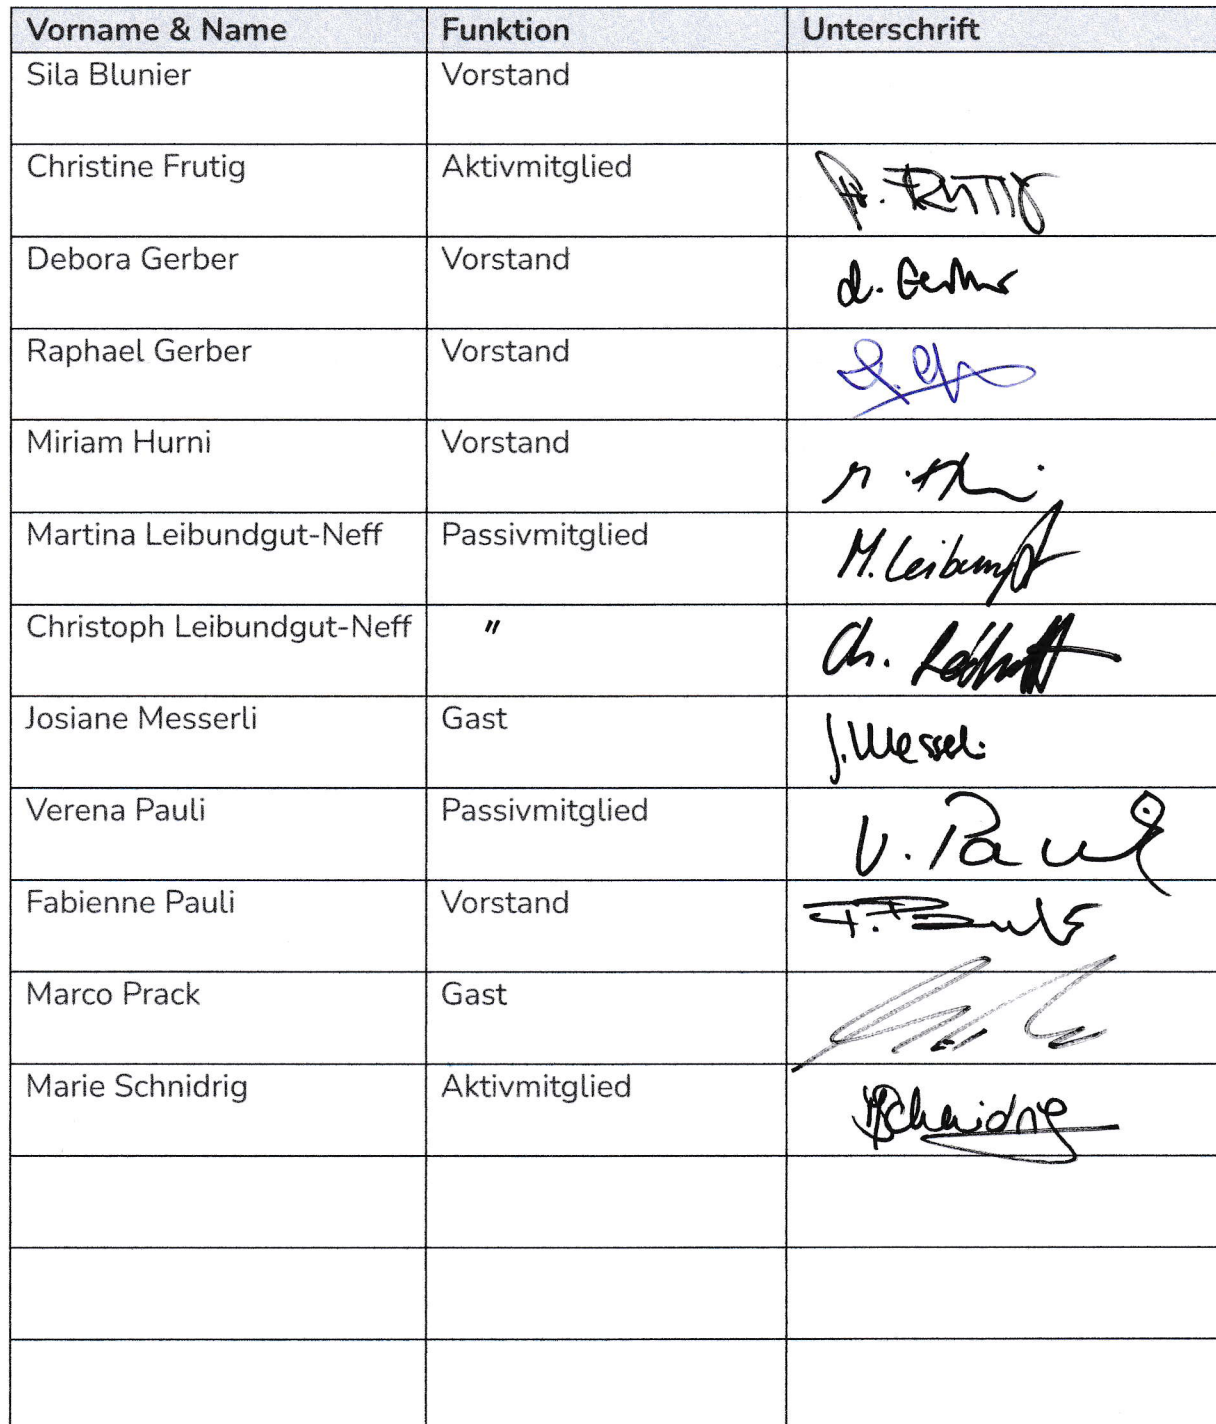 Vorname & Name Funktion Unterschrift
Sila Blunier Vorstand
Christine Frutig Aktivmitglied Fr. FRUTIG
Debora Gerber Vorstand d. Gerber
Raphael Gerber Vorstand
Miriam Hurni Vorstand
Martina Leibundgut-Neff Passivmitglied M. Leibundgut
Christoph Leibundgut-Neff " Ch.
Josiane Messerli Gast J. Messerli
Verena Pauli Passivmitglied V. Pauli
Fabienne Pauli Vorstand F. Pauli
Marco Prack Gast
Marie Schnidrig Aktivmitglied MSchnidrig